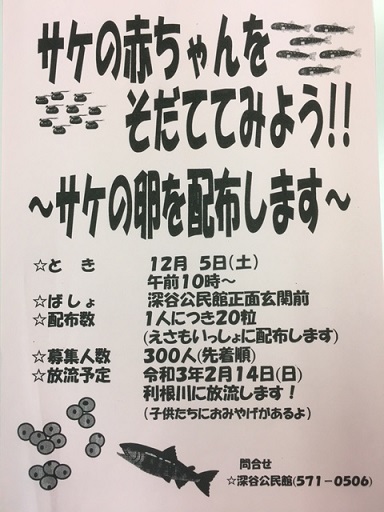 サケの赤ちゃんを
そだててみよう!!
～サケの卵を配布します～
☆と き 12月 5日(土)
午前10時～
☆ばしょ 深谷公民館正面玄関前
☆配布数 1人につき20粒
(えさもいっしょに配布します)
☆募集人数 300人(先着順)
☆放流予定 令和3年2月14日(日)
利根川に放流します!
(子供たちにおみやげがあるよ)
問合せ
☆深谷公民館(571-0506)